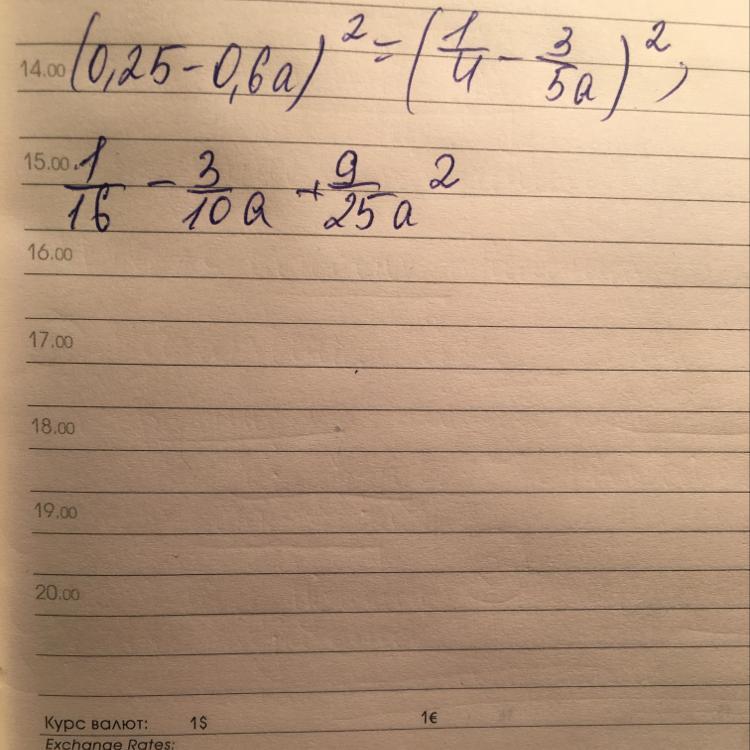 14.00 (0,25-0,6a)²=(1/4 - 3/5a)²,
15.00 1/16 - 3/10a + 9/25a²
16.00
17.00
18.00
19.00
20.00
Курс валют: 1$ 1€
Exchange Rates: